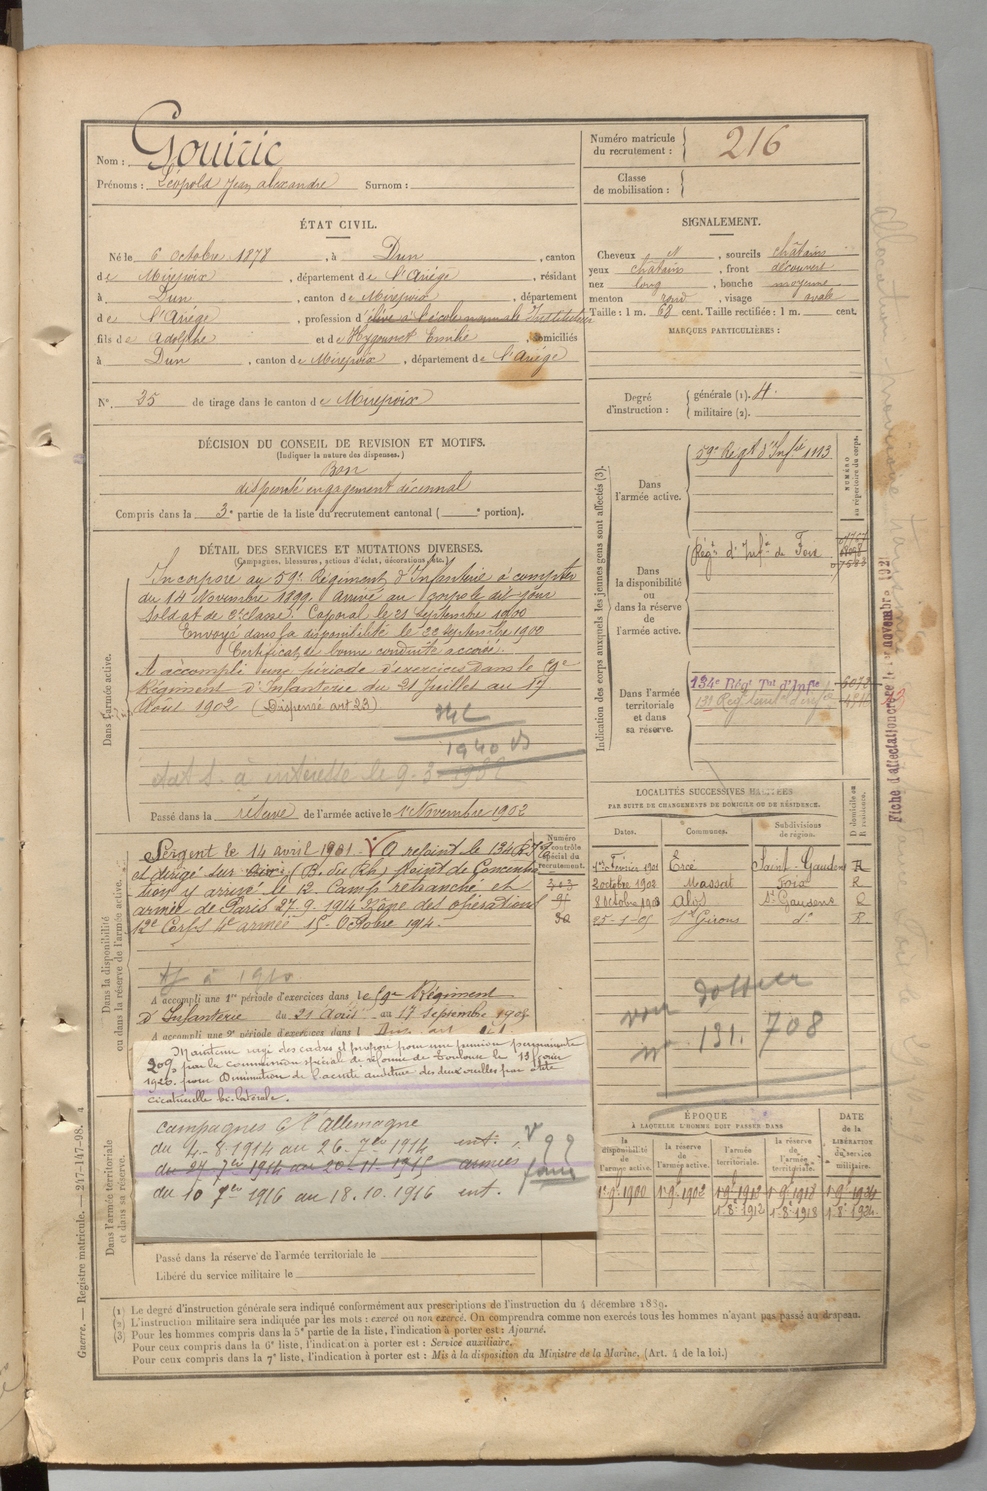 Nom : Gouiric
Prénoms : Léopold Jean Alexandre Surnom :
Numéro matricule du recrutement : 216
Classe de mobilisation :
ÉTAT CIVIL.
Né le 6 octobre 1878, à Dun, canton
de Mirepoix, département de l'Ariège, résidant
à Dun, canton de Mirepoix, département
de l'Ariège, profession d'élève à l'école normale Instituteur
fils de Adolphe et de Emilie, domiciliés
à Dun, canton de Mirepoix, département de l'Ariège
N° 35 de tirage dans le canton de Mirepoix
SIGNALEMENT.
Cheveux N, sourcils châtains
yeux châtains, front découvert
nez long, bouche moyenne
menton rond, visage ovale
Taille : 1 m. 62 cent. Taille rectifiée : 1 m. cent.
MARQUES PARTICULIÈRES :
Degré d'instruction : générale (1). 4.
militaire (2).
DÉCISION DU CONSEIL DE REVISION ET MOTIFS.
(Indiquer la nature des dispenses.)
Bon
dispensé engagement décennal
Compris dans la 3e partie de la liste du recrutement cantonal ( e portion).
DÉTAIL DES SERVICES ET MUTATIONS DIVERSES.
(Campagnes, blessures, actions d'éclat, décorations, etc.)
Dans l'armée active.
Incorporé au 59e Régiment d'Infanterie à compter
du 14 Novembre 1899, arrivé au corps le dit jour
soldat de 2e classe. Caporal le 21 septembre 1900
Envoyé dans la disponibilité le 22 septembre 1900
Certificat de bonne conduite accordé.
A accompli une période d'exercices dans le 59e
Régiment d'Infanterie du 21 Juillet au 17
Août 1902 (Dispensé art 23)
1940
à intéressé le 9.3
Passé dans la réserve de l'armée active le 1er Novembre 1902
Indication des corps auxquels les jeunes gens sont affectés (3).
NUMÉRO au répertoire du corps.
Dans l'armée active.
59e Régt d'Infie 1113
Dans la disponibilité ou dans la réserve de l'armée active.
Régt d'Infie de Foix
Dans l'armée territoriale et dans sa réserve.
134e Régt Tal d'Infie
Fiche d'affectation créée le 1er novembre 1921
LOCALITÉS SUCCESSIVES HABITÉES
PAR SUITE DE CHANGEMENTS DE DOMICILE OU DE RÉSIDENCE.
Dates. Communes. Subdivisions de région. D domicile ou R résidence.
1er Février 1901 Ercé Saint-Gaudens R
2 octobre 1902 Massat Foix R
8 Octobre 1903 Alos St Gaudens R
25-1-05 St Girons do R
voir dossier
no 131.708
Dans la disponibilité ou dans la réserve de l'armée active.
Numéro au contrôle spécial du recrutement.
Sergent le 14 avril 1901. A rejoint le 134e R
et dirigé sur (B. du Rh) Point de Concentra
tion y arrivé le 12. Camp retranché et
armée de Paris 27.9.1914 Zône des opérations
12e Corps 4e armée 15 Octobre 1914.
A accompli une 1re période d'exercices dans le 59e Régiment
d'Infanterie du 21 Août au 17 Septembre 1905
A accompli une 2e période d'exercices dans l
Maintenu rayé des cadres et proposé pour une pension permanente
20% par la commission spéciale de réforme de Toulouse le 13 février
1926. pour Diminution de l'acuité auditive des deux oreilles par otite
cicatricielle bi-latérale.
Campagnes C/ l'Allemagne
du 4-8-1914 au 26-7bre 1914 int.
du 27 7bre 1914 au 20-11-1915 armées
du 10 7bre 1916 au 18.10.1916 int.
ÉPOQUE
À LAQUELLE L'HOMME DOIT PASSER DANS
la disponibilité de l'armée active. la réserve de l'armée active. l'armée territoriale. la réserve de l'armée territoriale.
DATE de la LIBÉRATION du service militaire.
1er 9bre 1900 1er 9bre 1902 1er 9bre 1912 1er 9bre 1918 1er 9bre 1924
1-8e 1912 1-8e 1918 1-8e 1924
Dans l'armée territoriale et dans sa réserve.
Passé dans la réserve de l'armée territoriale le
Libéré du service militaire le
(1) Le degré d'instruction générale sera indiqué conformément aux prescriptions de l'instruction du 4 décembre 1889.
(2) L'instruction militaire sera indiquée par les mots : exercé ou non exercé. On comprendra comme non exercés tous les hommes n'ayant pas passé au drapeau.
(3) Pour les hommes compris dans la 5e partie de la liste, l'indication à porter est : Ajourné.
Pour ceux compris dans la 6e liste, l'indication à porter est : Service auxiliaire.
Pour ceux compris dans la 7e liste, l'indication à porter est : Mis à la disposition du Ministre de la Marine. (Art. 4 de la loi.)
Guerre. — Registre matricule. — 247-147-98.